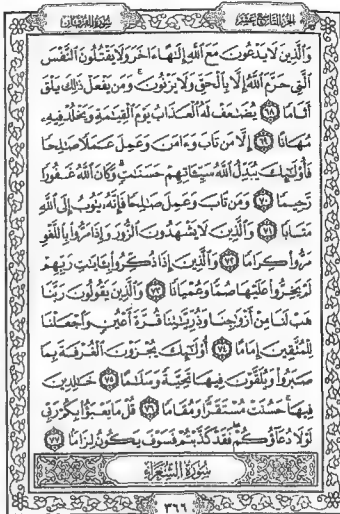 الجزء التاسع عشر سورة الفرقان
وَالَّذِينَ لَا يَدْعُونَ مَعَ اللَّهِ إِلَٰهًا ءَاخَرَ وَلَا يَقْتُلُونَ النَّفْسَ
الَّتِي حَرَّمَ اللَّهُ إِلَّا بِالْحَقِّ وَلَا يَزْنُونَ ۚ وَمَن يَفْعَلْ ذَٰلِكَ يَلْقَ
أَثَامًا ٦٨ يُضَٰعَفْ لَهُ الْعَذَابُ يَوْمَ الْقِيَٰمَةِ وَيَخْلُدْ فِيهِۦ
مُهَانًا ٦٩ إِلَّا مَن تَابَ وَءَامَنَ وَعَمِلَ عَمَلًا صَٰلِحًا
فَأُو۟لَٰٓئِكَ يُبَدِّلُ اللَّهُ سَيِّـَٔاتِهِمْ حَسَنَٰتٍ ۗ وَكَانَ اللَّهُ غَفُورًا
رَّحِيمًا ٧٠ وَمَن تَابَ وَعَمِلَ صَٰلِحًا فَإِنَّهُۥ يَتُوبُ إِلَى اللَّهِ
مَتَابًا ٧١ وَالَّذِينَ لَا يَشْهَدُونَ الزُّورَ وَإِذَا مَرُّوا بِاللَّغْوِ
مَرُّوا كِرَامًا ٧٢ وَالَّذِينَ إِذَا ذُكِّرُوا بِـَٔايَٰتِ رَبِّهِمْ
لَمْ يَخِرُّوا عَلَيْهَا صُمًّا وَعُمْيَانًا ٧٣ وَالَّذِينَ يَقُولُونَ رَبَّنَا
هَبْ لَنَا مِنْ أَزْوَٰجِنَا وَذُرِّيَّٰتِنَا قُرَّةَ أَعْيُنٍ وَاجْعَلْنَا
لِلْمُتَّقِينَ إِمَامًا ٧٤ أُو۟لَٰٓئِكَ يُجْزَوْنَ الْغُرْفَةَ بِمَا
صَبَرُوا وَيُلَقَّوْنَ فِيهَا تَحِيَّةً وَسَلَٰمًا ٧٥ خَٰلِدِينَ
فِيهَا ۚ حَسُنَتْ مُسْتَقَرًّا وَمُقَامًا ٧٦ قُلْ مَا يَعْبَؤُا بِكُمْ رَبِّي
لَوْلَا دُعَآؤُكُمْ ۖ فَقَدْ كَذَّبْتُمْ فَسَوْفَ يَكُونُ لِزَامًا ٧٧
سُورَةُ الشُّعَرَاءِ
٣٦٦